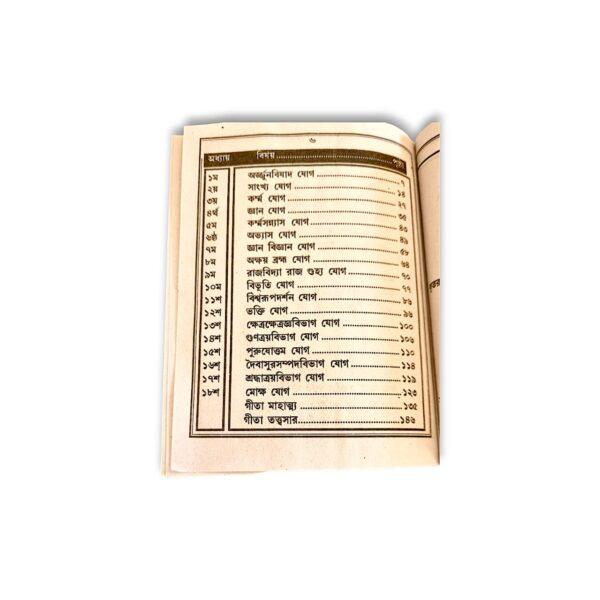 ৬
অধ্যায় বিষয় পৃষ্ঠা
১ম অর্জ্জুনবিষাদ যোগ ৭
২য় সাংখ্য যোগ ১৪
৩য় কর্ম্ম যোগ ২৭
৪র্থ জ্ঞান যোগ ৩৫
৫ম কর্ম্মসন্ন্যাস যোগ ৪৩
৬ষ্ঠ অভ্যাস যোগ ৪৯
৭ম জ্ঞান বিজ্ঞান যোগ ৫৮
৮ম অক্ষয় ব্রহ্ম যোগ ৬৪
৯ম রাজবিদ্যা রাজ গুহ্য যোগ ৭০
১০ম বিভূতি যোগ ৭৭
১১শ বিশ্বরূপদর্শন যোগ ৮৬
১২শ ভক্তি যোগ ৯৬
১৩শ ক্ষেত্রক্ষেত্রজ্ঞবিভাগ যোগ ১০০
১৪শ গুণত্রয়বিভাগ যোগ ১০৬
১৫শ পুরুষোত্তম যোগ ১১০
১৬শ দৈবাসুরসম্পদবিভাগ যোগ ১১৪
১৭শ শ্রদ্ধাত্রয়বিভাগ যোগ ১১৯
১৮শ মোক্ষ যোগ ১২৩
গীতা মাহাত্ম্য ১৩৫
গীতা তত্ত্বসার ১৪৬